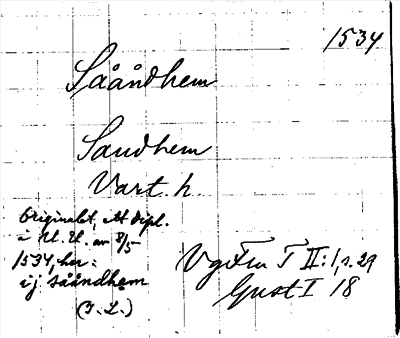 1534
Sååndhem
Sandhem
Vart. h.
Originalet, ett dipl.
i U. U. av 8/5
1534, har:
ij sååndhem
(I. L.)
VgFM T II:1, s. 29
Gust I 18